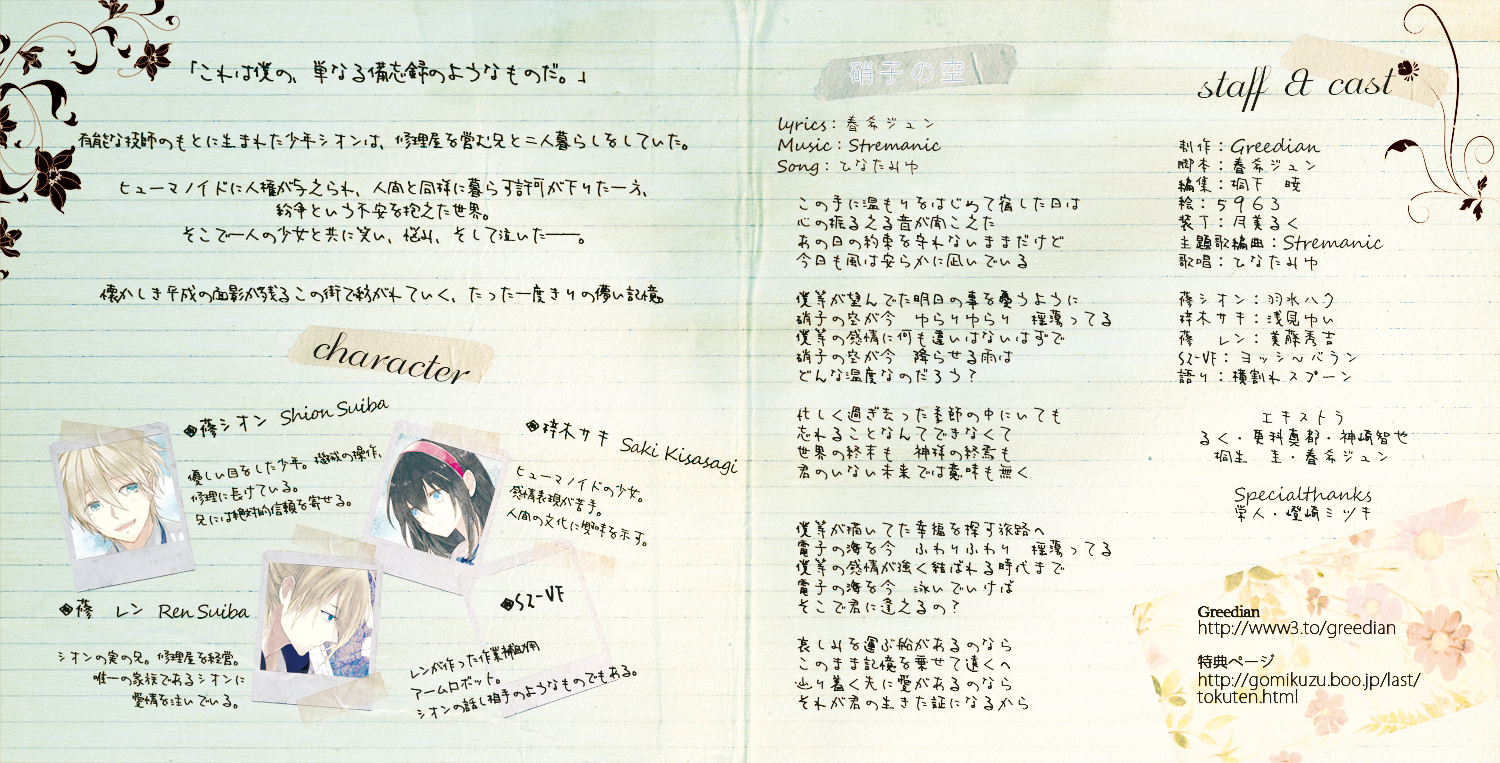 「これは僕の、単なる備忘録のようなものだ。」
有能な技師のもとに生まれた少年シオンは、修理屋を営む兄と二人暮らしをしていた。
ヒューマノイドに人権が与えられ、人間と同様に暮らす許可が下りた一方、
紛争という不安を抱えた世界。
そこで一人の少女と共に笑い、悩み、そして泣いた――。
懐かしき平成の面影が残るこの街で紡がれていく、たった一度きりの儚い記憶
character
◆蓚シオン Shion Suiba
優しい目をした少年。機械の操作、
修理に長けている。
兄には絶対的信頼を寄せる。
◆梓木サキ Saki Kisasagi
ヒューマノイドの少女。
感情表現が苦手。
人間の文化に興味を示す。
◆蓚 レン Ren Suiba
シオンの実の兄。修理屋を経営。
唯一の家族であるシオンに
愛情を注いでいる。
◆S2-VF
レンが作った作業補助用
アームロボット。
シオンの話し相手のようなものでもある。
硝子の空
lyrics：春希ジュン
Music：Stremanic
Song：ひなたみゆ
この手に温もりをはじめて宿した日は
心の振るえる音が聞こえた
あの日の約束を守れないままだけど
今日も風は安らかに凪いでいる
僕等が望んでた明日の事を憂うように
硝子の空が今 ゆらりゆらり 揺蕩ってる
僕等の感情に何も違いはないはずで
硝子の空が今 降らせる雨は
どんな温度なのだろう？
忙しく過ぎ去った季節の中にいても
忘れることなんてできなくて
世界の終末も 神様の終焉も
君のいない未来では意味も無く
僕等が描いてた幸福を探す旅路へ
電子の海を今 ふわりふわり 揺蕩ってる
僕等の感情が強く結ばれる時代まで
電子の海を今 泳いでいけば
そこで君に逢えるの？
哀しみを運ぶ船があるのなら
このまま記憶を乗せて遠くへ
辿り着く先に愛があるのなら
それが君の生きた証になるから
staff & cast
制作：Greedian
脚本：春希ジュン
編集：桐下 暁
絵：5963
装丁：月美るく
主題歌編曲：Stremanic
歌唱：ひなたみゆ
蓚シオン：羽水ハク
梓木サキ：浅見ゆい
蓚 レン：美藤秀吉
S2-VF：ヨッシ～バラン
語り：横割れスプーン
エキストラ
るく・更科真都・神崎智也
桐生 圭・春希ジュン
Specialthanks
常人・燈崎ミツキ
Greedian
http://www3.to/greedian
特典ページ
http://gomikuzu.boo.jp/last/
tokuten.html